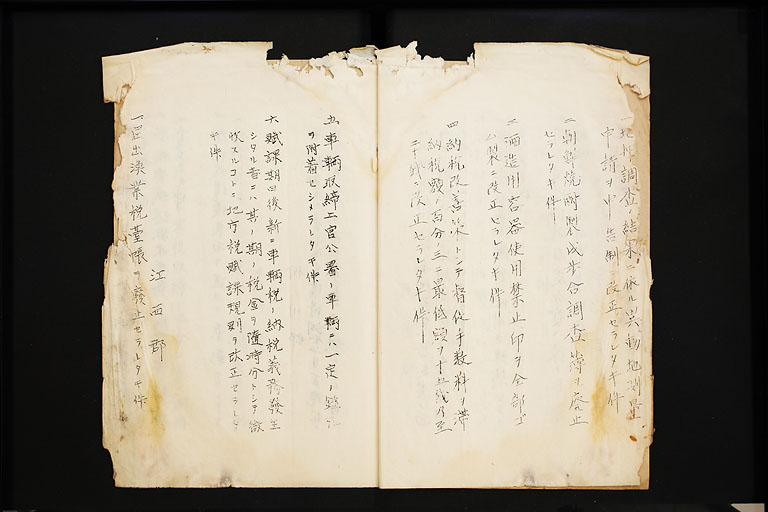 一 地押調査ノ結果ニ依ル異動地測量
申請ヲ申告制ニ改正セラレタキ件
二 朝鮮焼酎製成歩合調査簿ヲ廃止
セラレタキ件
三 酒造用容器使用禁止印ヲ全部ゴ
ム製ニ改正セラレタキ件
四 納税改善策トシテ督促手数料ヲ滞
納税額ノ百分ノ三ニ最低額ヲ十五銭乃至
二十銭ニ改正セラレタキ件
五 車輌取締上官公署ノ車輌ニハ一定ノ
ヲ附着セシメラレタキ件
六 賦課期日後新ニ車輌税ノ納税義務発生
シタル者ニハ其ノ期ノ税金ヲ随時分トシテ徴
収スルコトニ地方税賦課規則ヲ改正セラレタ
キ件
江西郡
一 届出漁業税台帳ヲ廃止セラレタキ件